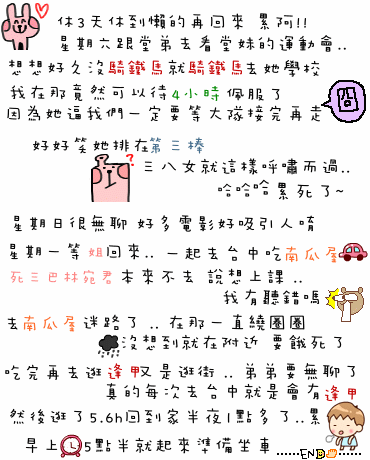 休3天休到懶的再回來 累阿!!
星期六跟堂弟去看堂妹的運動會..
想想好久沒騎鐵馬就騎鐵馬去她學校
我在那竟然可以待4小時 佩服了
因為她逼我們一定要等大隊接完再走
囧
好好笑她排在第三棒
?
三八女就這樣呼嘯而過..
哈哈哈累死了~
星期日很無聊 好多電影好吸引人唷
星期一等 姐回來.. 一起去台中吃南瓜屋
死三巴林宛君本來不去 說想上課..
我有聽錯嗎
去南瓜屋迷路了.. 在那一直繞圈圈
沒想到就在附近 要餓死了
吃完再去逛逢甲又是逛街.. 弟弟要無聊了
真的每次去台中就是會有逢甲
然後逛了5.6h回到家半夜1點多了..累
早上5點半就起來準備坐車 ......END......